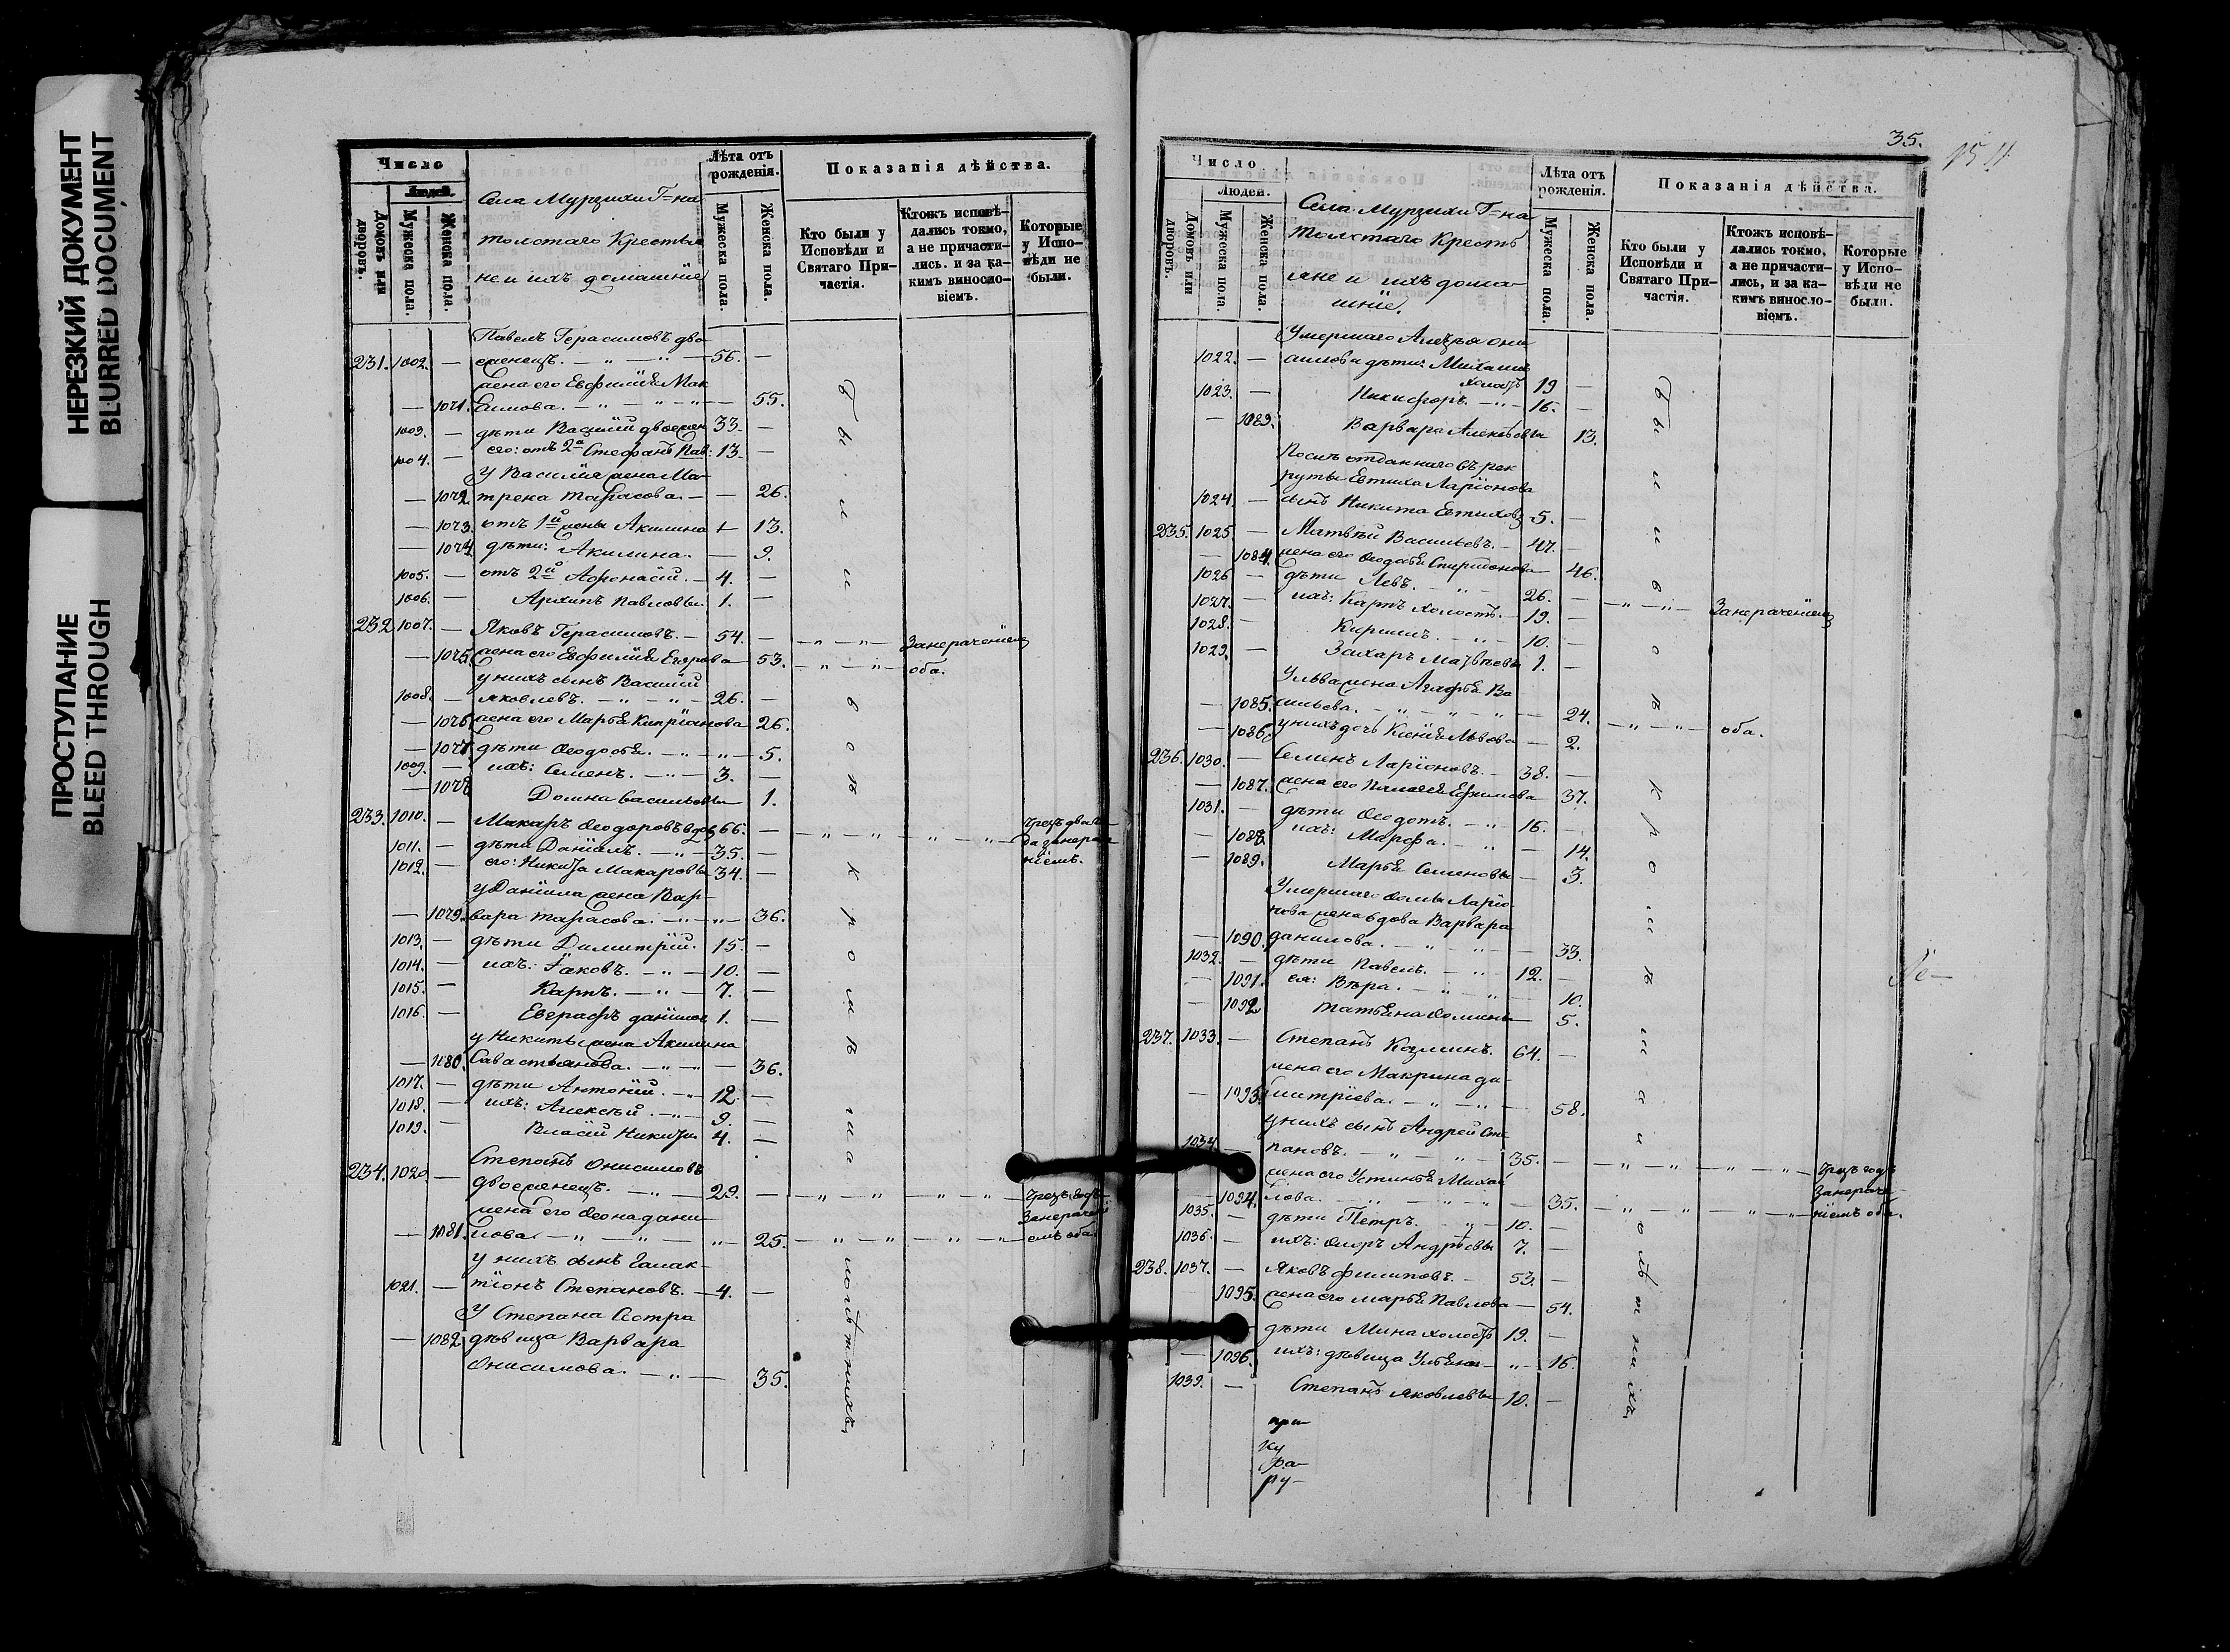 НЕРЕЗКИЙ ДОКУМЕНТ
BLURRED DOCUMENT
ПРОСТУПАНИЕ
BLEED THROUGH
Число
Людей.
Домовъ или дворовъ.
Мужеска пола.
Женска пола.
Села Мурзихи Г=на
толстаго Крестья
не и ихъ домашніе
Лѣта отъ рожденія.
Мужеска пола.
Женска пола.
Показанія дѣйства.
Кто были у Исповѣди и Святаго Причастія.
Ктожъ исповѣ-
дались токмо,
а не причасти-
лись. и за ка-
кимъ винословіемъ.
Которые
у Испо-
вѣди не
были.
Павелъ Герасимовъ дво
231. 1002. — еженецъ. — „ — „ — 56. —
жена его Евфимія Мак
— 1071. симова. — „ — „ — 55.
1003. — дѣти Василій двоежен 33. —
1004. — его: отъ 2й Стефанъ Пав: 13. —
У Василія жена Ма-
— 1072 трена Тарасова. — — 26.
— 1073. отъ 1й жены Акилина — 13.
— 1074 дѣти: Акилина. — 9.
1005. — отъ 2й Афонасій. — 4. —
1006. — Архипъ Павловы. 1. —
232 1007. — Яковъ Герасимовъ. — 54. — — „ — „ — Занерачніемъ
— 1075. жена его Евфимія Егорова — 53. — „ — „ — оба.
у нихъ сынъ Василій
1008. — Яковлевъ. — „ — „ — 26. —
— 1076. жена его Марья Кипріанова 26.
— 1077. дѣти Ѳеодосья. — „ — „ — 5.
1009. — ихъ: Семенъ. — „ — 3. —
— 1078 Домна Васильевы 1.
233. 1010. — Макаръ Ѳеодоровъ вдов 66. — — „ — „ — „ — „ — Чрезъ два го
1011. — дѣти Даніилъ. — „ — 35. — да занерач
1012. — его: Никита Макаровы 34. — ніемъ.
у Даніила жена Вар-
— 1079. вара Тарасова. — „ — „ — 36.
1013. — дѣти Димитрій. 15. —
1014. — ихъ: Іаковъ. — „ — 10. —
1015. — Карпъ. — „ — 7. —
1016. — Евграфъ Данілов 1. —
у Никиты жена Акилина
— 1080. Савастьянова. — „ — „ — 36.
1017. — дѣти Антоній. — „ 12 —
1018. — ихъ: Алексѣй. — „ — 9. —
1019. — Власій Никиты 4. —
Степанъ Онисимовъ
234. 1020 — двоеженецъ. — „ — 29. — — „ — „ — „ — „ — Чрезъ годъ
жена его Ѳеона Дани- Занерачені
— 1081. лова. — „ — „ — „ — 25. — „ — „ — „ — „ — емъ оба.
у нихъ сынъ Галак-
1021. — тіонъ Степановъ. — 4. —
У Степана Сестра
— 1082 дѣвица Варвара
Онисимова. — „ — 35.
были
всѣ
кромѣ
малолѣтнихъ
35.
Число
Людей.
Домовъ или дворовъ.
Мужеска пола.
Женска пола.
Села Мурзихи Г=на
Толстаго Кресть
яне и ихъ дома-
шніе.
Лѣта отъ рожденія.
Мужеска пола.
Женска пола.
Показанія дѣйства.
Кто были у Исповѣди и Святаго Причастія.
Ктожъ исповѣ-
дались токмо,
а не причасти-
лись, и за ка-
кимъ винословіемъ.
Которые
у Испо-
вѣди не
были.
Умершаго Алексѣя Они
1022. — симова дѣти: Михаилъ
холостъ 19 —
1023. — Никифоръ. — „ — 16. —
— 1083. Варвара Алексѣевы 13.
Послѣ отданнаго въ рек
руты Евтиха Ларіонова
1024. — сынъ Никита Евтиховъ 5. —
235. 1025. — Матвѣй Васильевъ. — 47. —
— 1084. жена его Ѳеодосья Спиридонова 46.
1026 — дѣти Левъ. — „ — 26. —
1027. — ихъ: Карпъ холостъ. — 19. — — „ — „ — Занерачніемъ
1028. — Кирилъ. — „ — 10. —
1029. — Захаръ Матвѣевы 1. —
У Льва жена Агафья Ва
— 1085. сильева. — „ — „ — „ — 24. — „ — „ — оба.
— 1086. у нихъ дочь Ксенія Львова — 2.
236. 1030. — Семенъ Ларіоновъ. — 38. —
— 1087. жена его Пелагея Ефимова 37.
1031. — дѣти Ѳеодотъ. — „ — 16. —
— 1088 ихъ: Марфа. — „ — 14.
— 1089. Марья Семеновы — 3.
Умершаго Ѳомы Ларіо-
нова жена вдова Варвара
— 1090. Данилова. — „ — „ — 33.
1032. — дѣти Павелъ. — „ — 12. —
— 1091. ея: Вѣра. — „ — „ — 10.
— 1092 Татьяна Ѳомины — 5.
237. 1033. — Степанъ Козминъ. 64. —
жена его Макрина Ди-
— 1093. митріева. — „ — „ — 58.
у нихъ сынъ Андрей Сте
1034. — пановъ. — „ — „ — 35. — — „ — „ — „ — „ — Чрезъ годъ
жена его Устинья Михай Занераче-
— 1094. лова. — „ — „ — „ — 35. — „ — „ — „ — „ — ніемъ оба.
1035. — дѣти Петръ. — „ — 10. —
1036. — ихъ: Ѳлоръ Андрѣевы 7. —
238. 1037. — Яковъ Филиповъ. — 53. —
— 1095. жена его Марья Павлова — 54.
дѣти Мина холостъ 19. —
— 1096. ихъ: дѣвица Ульяна — „ — 16.
1039. — Степанъ Яковлевы 10. —
при-
ку
ра-
ру-
были
всѣ
кромѣ
малолѣтнихъ